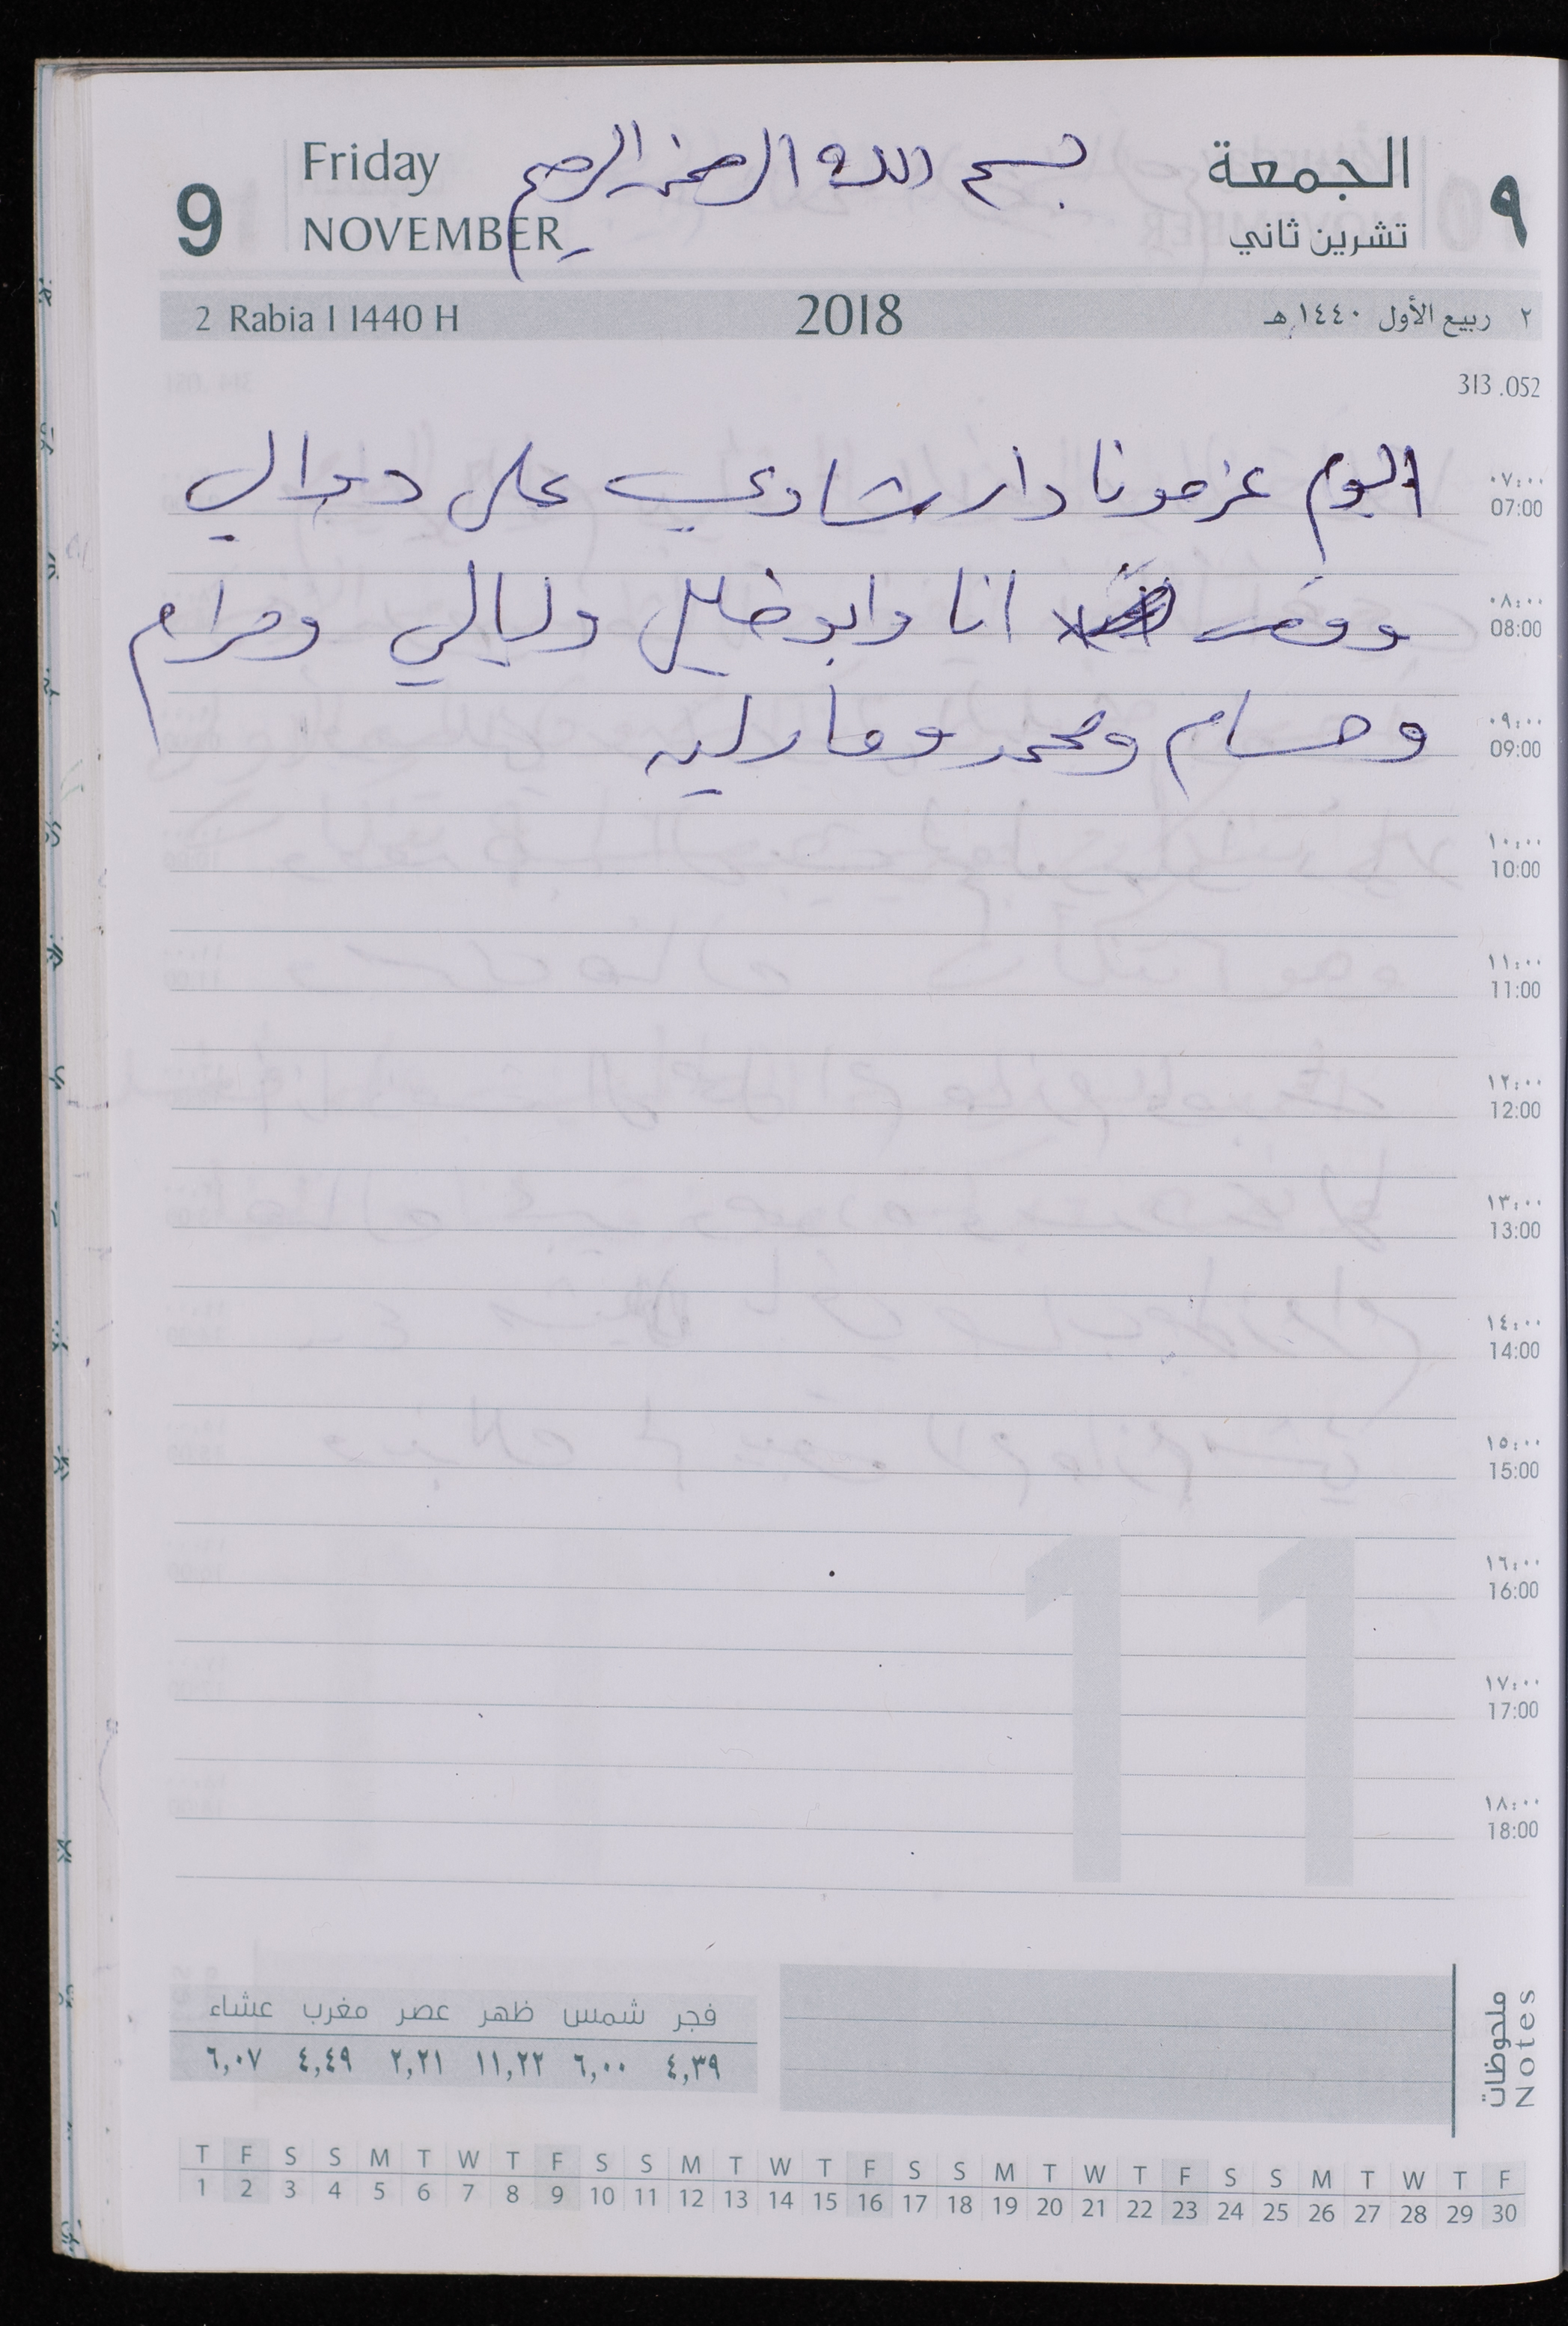 9 Friday NOVEMBER
بسم الله الرحمن الرحيم
الجمعة ٩
تشرين ثاني
2 Rabia I 1440 H 2018 ٢ ربيع الأول ١٤٤٠ هـ
313 .052
اليوم عزمونا دار شادي على دوالي
انا وابو خليل وليالي ومرام
وحسام ومحمد ومارلين
٠٧:٠٠
07:00
٠٨:٠٠
08:00
٠٩:٠٠
09:00
١٠:٠٠
10:00
١١:٠٠
11:00
١٢:٠٠
12:00
١٣:٠٠
13:00
١٤:٠٠
14:00
١٥:٠٠
15:00
١٦:٠٠
16:00
١٧:٠٠
17:00
١٨:٠٠
18:00
11
ملحوظات
Notes
فجر شمس ظهر عصر مغرب عشاء
٤,٣٩ ٦,٠٠ ١١,٢٢ ٢,٢١ ٤,٤٩ ٦,٠٧
T F S S M T W T F S S M T W T F S S M T W T F S S M T W T F
1 2 3 4 5 6 7 8 9 10 11 12 13 14 15 16 17 18 19 20 21 22 23 24 25 26 27 28 29 30